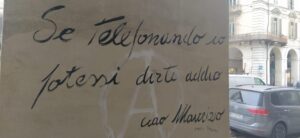 Se Telefonando io
potessi dirti addio
ciao Maurizio